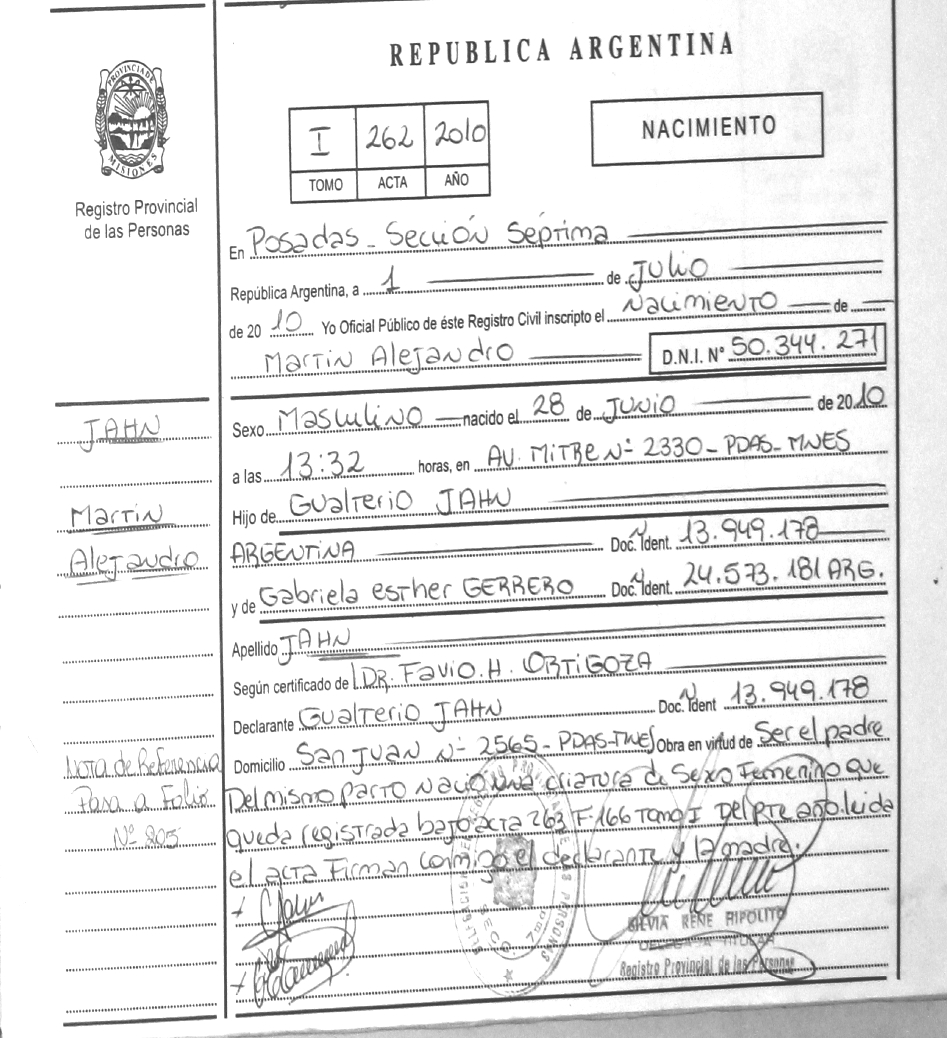 REPUBLICA ARGENTINA
PROVINCIA DE MISIONES
Registro Provincial de las Personas
I 262 2010
TOMO ACTA AÑO
NACIMIENTO
En Posadas - Sección Séptima
República Argentina, a 1 de Julio
de 2010 Yo Oficial Público de éste Registro Civil inscripto el Nacimiento de
Martin Alejandro D.N.I. N° 50.344.271
Sexo Masculino nacido el 28 de Junio de 2010
a las 13:32 horas, en AV. MITRE N° 2330 - PDAS - MNES
Hijo de Gualterio JAHN
ARGENTINA Doc. Ident. N 13.949.178
y de Gabriela esther GERRERO Doc. Ident. N 24.573.181 ARG.
Apellido JAHN
Según certificado de DR. Favio. H. ORTIGOZA
Declarante Gualterio JAHN Doc. Ident N 13.949.178
Domicilio San Juan N° 2565 - PDAS - MNES Obra en virtud de Ser el padre
Del mismo parto nació una criatura de Sexo Femenino que
queda registrada bajo acta 263 F.166 Tomo I Del pte año. leida
el acta Firman conmigo el declarante y la madre.
SILVIA RENE RIPOLITO
DELEGADA TITULAR
Registro Provincial de las Personas
JAHN
Martin
Alejandro
Nota de Referencia
Pasa a Folio
N° 205